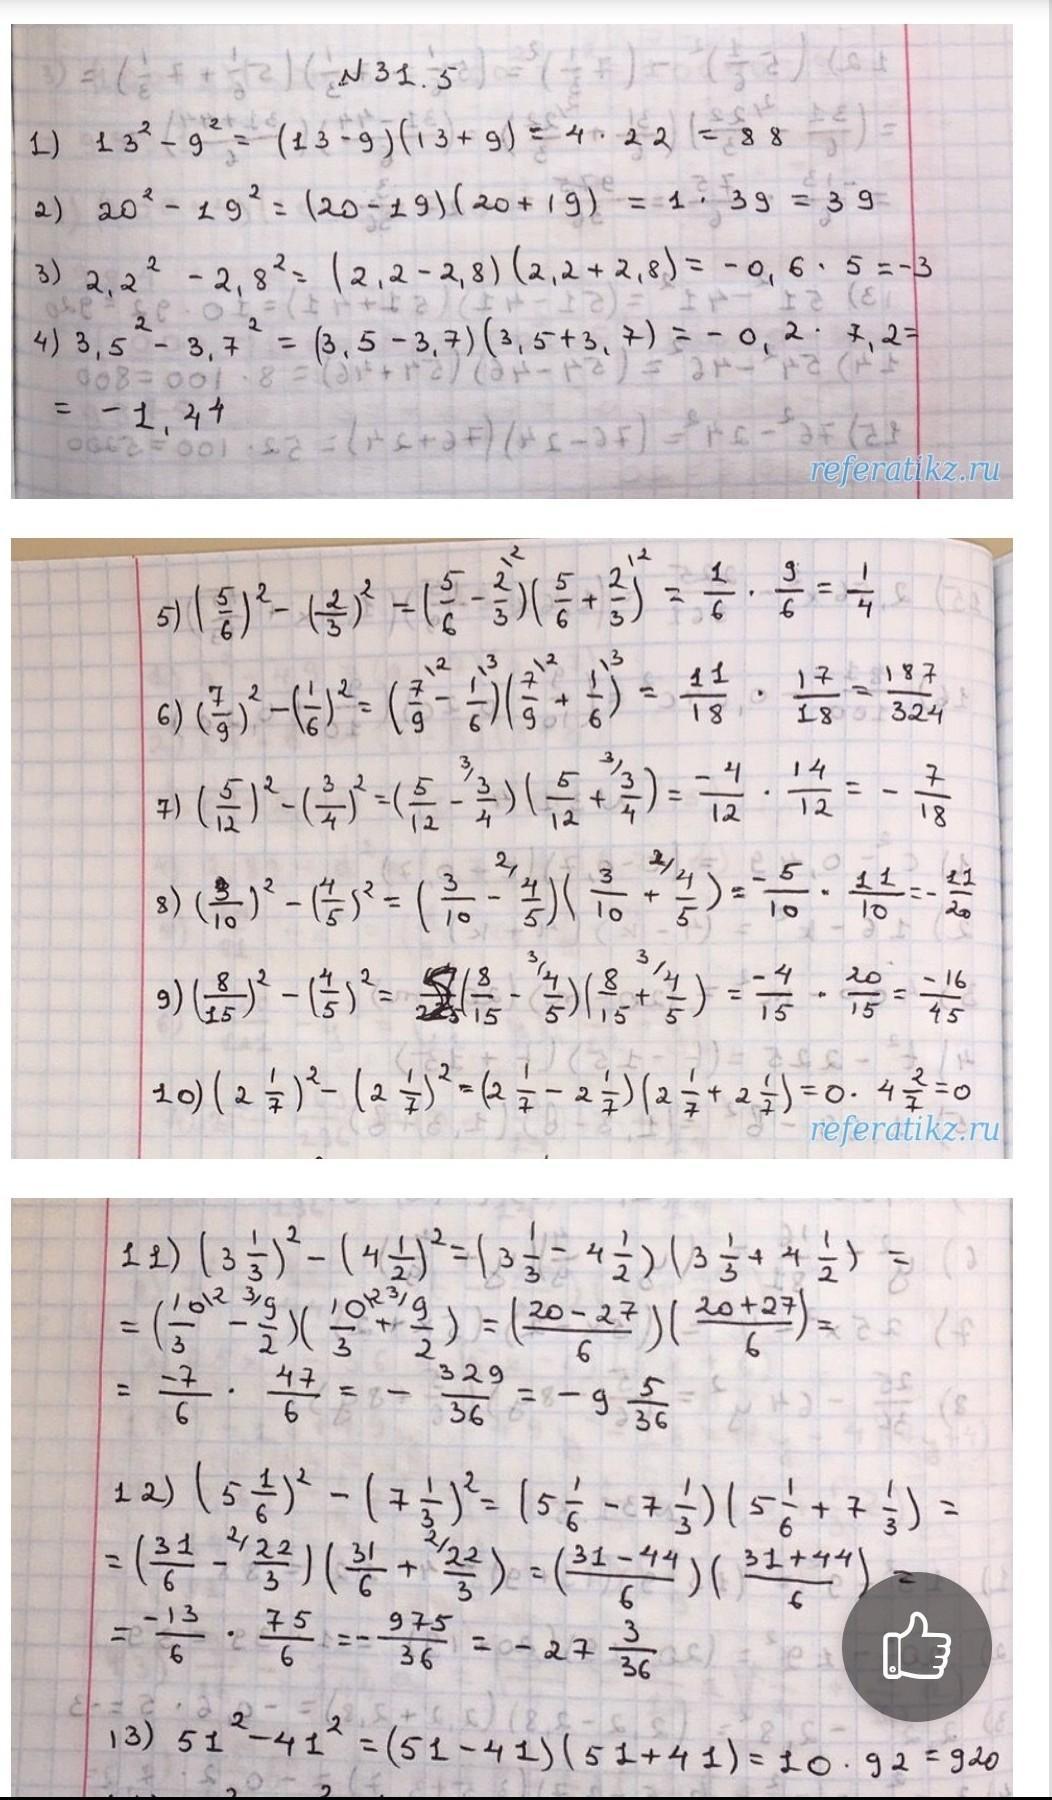 N 31.5
1) 13² - 9² = (13-9)(13+9) = 4 · 22 = 88
2) 20² - 19² = (20-19)(20+19) = 1 · 39 = 39
3) 2,2² - 2,8² = (2,2-2,8)(2,2+2,8) = -0,6 · 5 = -3
4) 3,5² - 3,7² = (3,5-3,7)(3,5+3,7) = -0,2 · 7,2 =
= -1,44
referatikz.ru
5) (5/6)² - (2/3)² = (5/6 - 2/3\2)(5/6 + 2/3\2) = 1/6 · 9/6 = 1/4
6) (7/9)² - (1/6)² = (7/9\2 - 1/6\3)(7/9\2 + 1/6\3) = 11/18 · 17/18 = 187/324
7) (5/12)² - (3/4)² = (5/12 - 3/ 3/4)(5/12 + 3/ 3/4) = -4/12 · 14/12 = -7/18
8) (3/10)² - (4/5)² = (3/10 - 2/ 4/5)(3/10 + 2/ 4/5) = -5/10 · 11/10 = -11/20
9) (8/15)² - (4/5)² = (8/15 - 3/ 4/5)(8/15 + 3/ 4/5) = -4/15 · 20/15 = -16/45
10) (2 1/7)² - (2 1/7)² = (2 1/7 - 2 1/7)(2 1/7 + 2 1/7) = 0 · 4 2/7 = 0
referatikz.ru
11) (3 1/3)² - (4 1/2)² = (3 1/3 - 4 1/2)(3 1/3 + 4 1/2) =
= (10/3\2 - 3/ 9/2)(10/3\2 + 3/ 9/2) = ((20-27)/6)((20+27)/6) =
= -7/6 · 47/6 = -329/36 = -9 5/36
12) (5 1/6)² - (7 1/3)² = (5 1/6 - 7 1/3)(5 1/6 + 7 1/3) =
= (31/6 - 2/ 22/3)(31/6 + 2/ 22/3) = ((31-44)/6)((31+44)/6) =
= -13/6 · 75/6 = -975/36 = -27 3/36
13) 51² - 41² = (51-41)(51+41) = 10 · 92 = 920